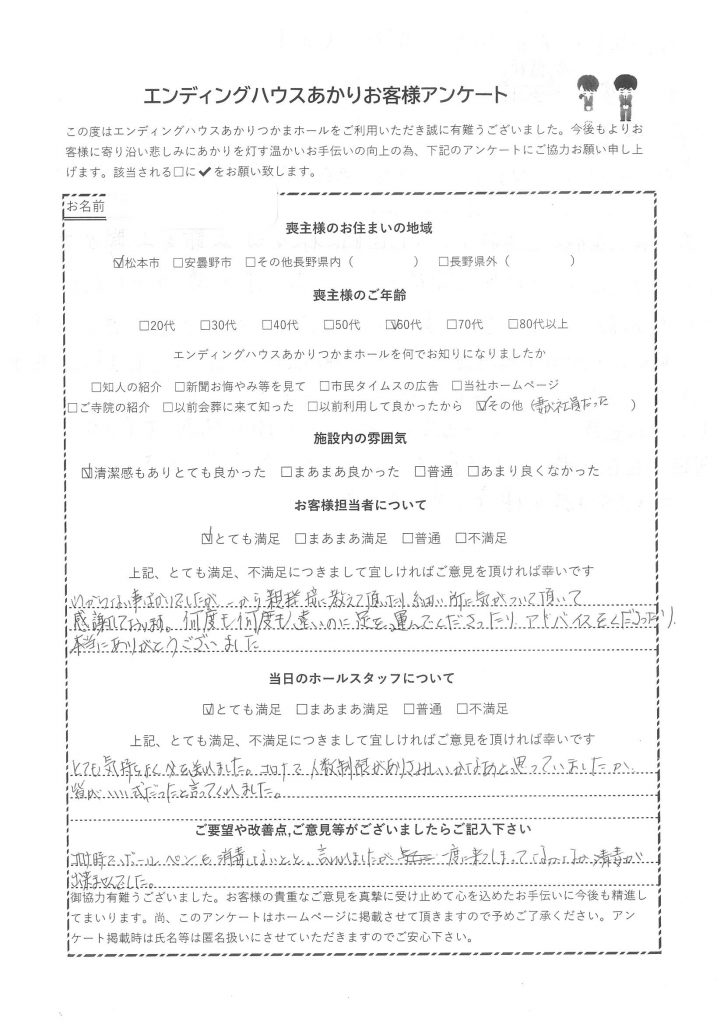 エンディングハウスあかりお客様アンケート
この度はエンディングハウスあかりつかまホールをご利用いただき誠に有難うございました。今後もよりお
客様に寄り沿い悲しみにあかりを灯す温かいお手伝いの向上の為、下記のアンケートにご協力お願い申し上
げます。該当される□に✔をお願い致します。
お名前
喪主様のお住まいの地域
☑松本市 □安曇野市 □その他長野県内（ ） □長野県外（ ）
喪主様のご年齢
□20代 □30代 □40代 □50代 ☑60代 □70代 □80代以上
エンディングハウスあかりつかまホールを何でお知りになりましたか
□知人の紹介 □新聞お悔やみ等を見て □市民タイムスの広告 □当社ホームページ
□ご寺院の紹介 □以前会葬に来て知った □以前利用して良かったから ☑その他（妻が社員だった ）
施設内の雰囲気
☑清潔感もありとても良かった □まあまあ良かった □普通 □あまり良くなかった
お客様担当者について
☑とても満足 □まあまあ満足 □普通 □不満足
上記、とても満足、不満足につきまして宜しければご意見を頂ければ幸いです
わからない事ばかりでしたが一から親切に教えて頂いたり細い所に気がついて頂いて
感謝しております。何度も何度も遠いのに足を運んでくださったり、アドバイスをくださったり、
本当にありがとうございました
当日のホールスタッフについて
☑とても満足 □まあまあ満足 □普通 □不満足
上記、とても満足、不満足につきまして宜しければご意見を頂ければ幸いです
とても気持ちよく父を送れました。コロナで人数制限がありさみしいかなあと思っていましたが、
皆がいい式だったと言ってくれました。
ご要望や改善点,ご意見等がございましたらご記入下さい
コロナ時でボールペンも消毒してないとと、言いましたが 一度に来てしまって なかなか消毒が
出来ませんでした。
御協力有難うございました。お客様の貴重なご意見を真摯に受け止めて心を込めたお手伝いに今後も精進し
てまいります。尚、このアンケートはホームページに掲載させて頂きますので予めご了承ください。アン
ケート掲載時は氏名等は匿名扱いにさせていただきますのでご安心下さい。